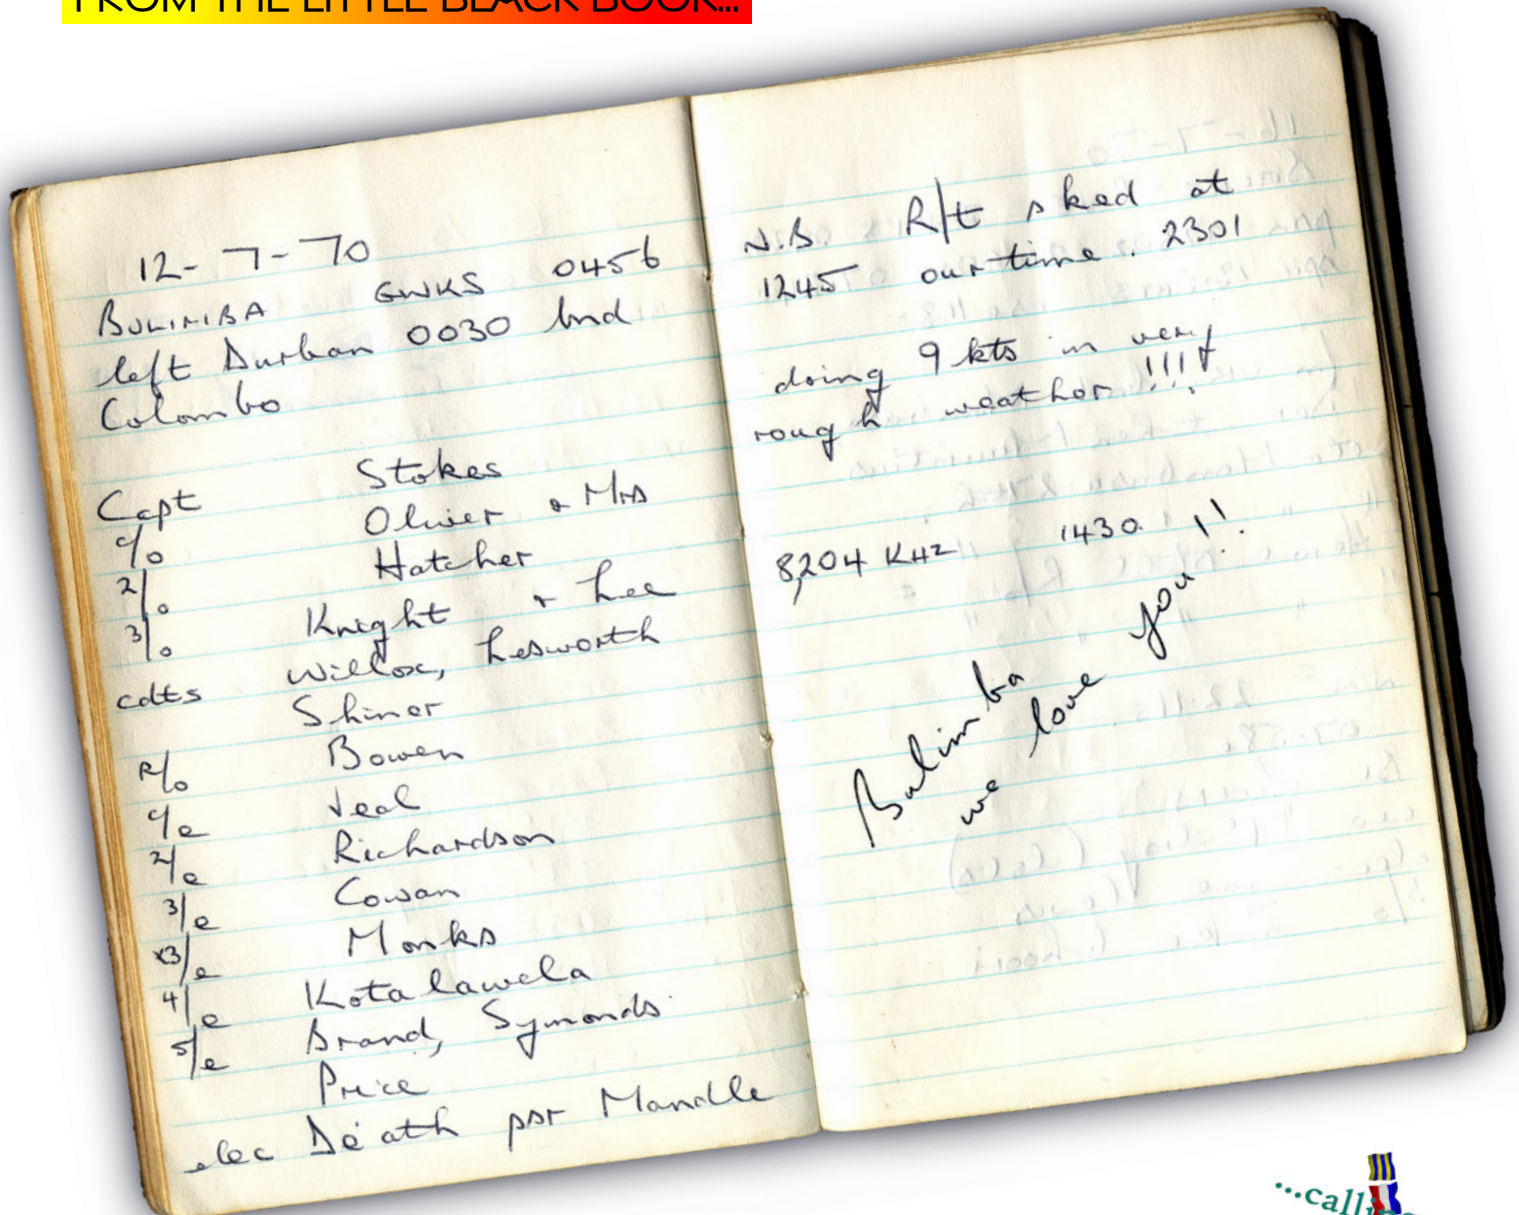 FROM THE LITTLE BLACK BOOK...
12-7-70
BULIMBA GWKS 0456
left Durban 0030 bnd
Colombo
Capt Stokes
c/o Oliver & Mrs
2/o Hatcher
3/o Knight & Lee
cdts Willox, Lesworth
Shiner
R/o Bowen
c/e Veal
2/e Richardson
3/e Cowan
x3/e Monks
4/e Kotalawela
5/e Brand, Symonds
Price
elec De'ath psr Mandle
N.B R/t sked at
1245 our time. 2301
doing 9 kts in very
rough weather!!!!
8,204 KHz 1430.
Bulimba
we love you!!
...calling